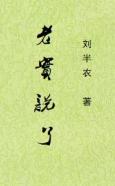 刘半农 著
老實說了